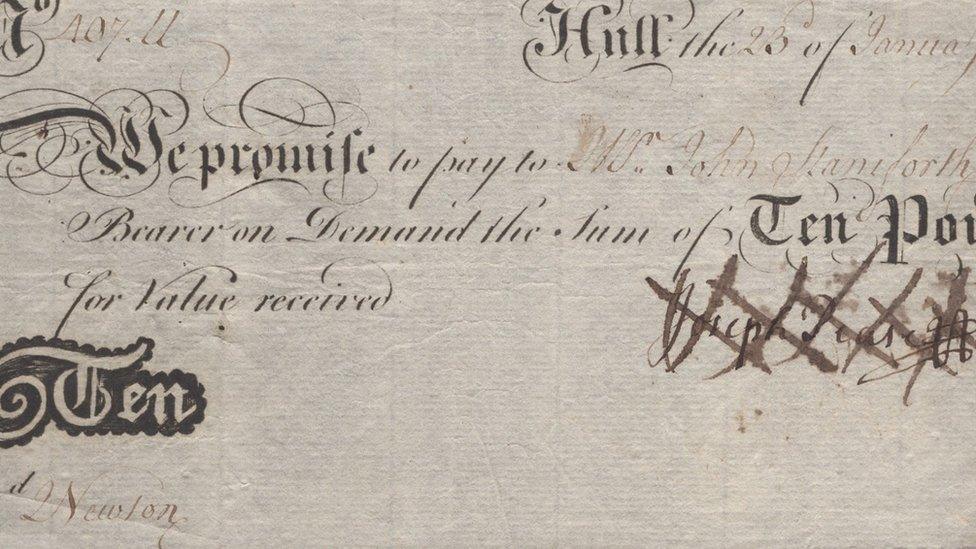 No 407.11 Hull the 23d of Januar
We promise to pay to Mr. John Staniforth
Bearer on Demand the Sum of Ten Pou
for Value received
Joseph Pease
Ten
d Newton